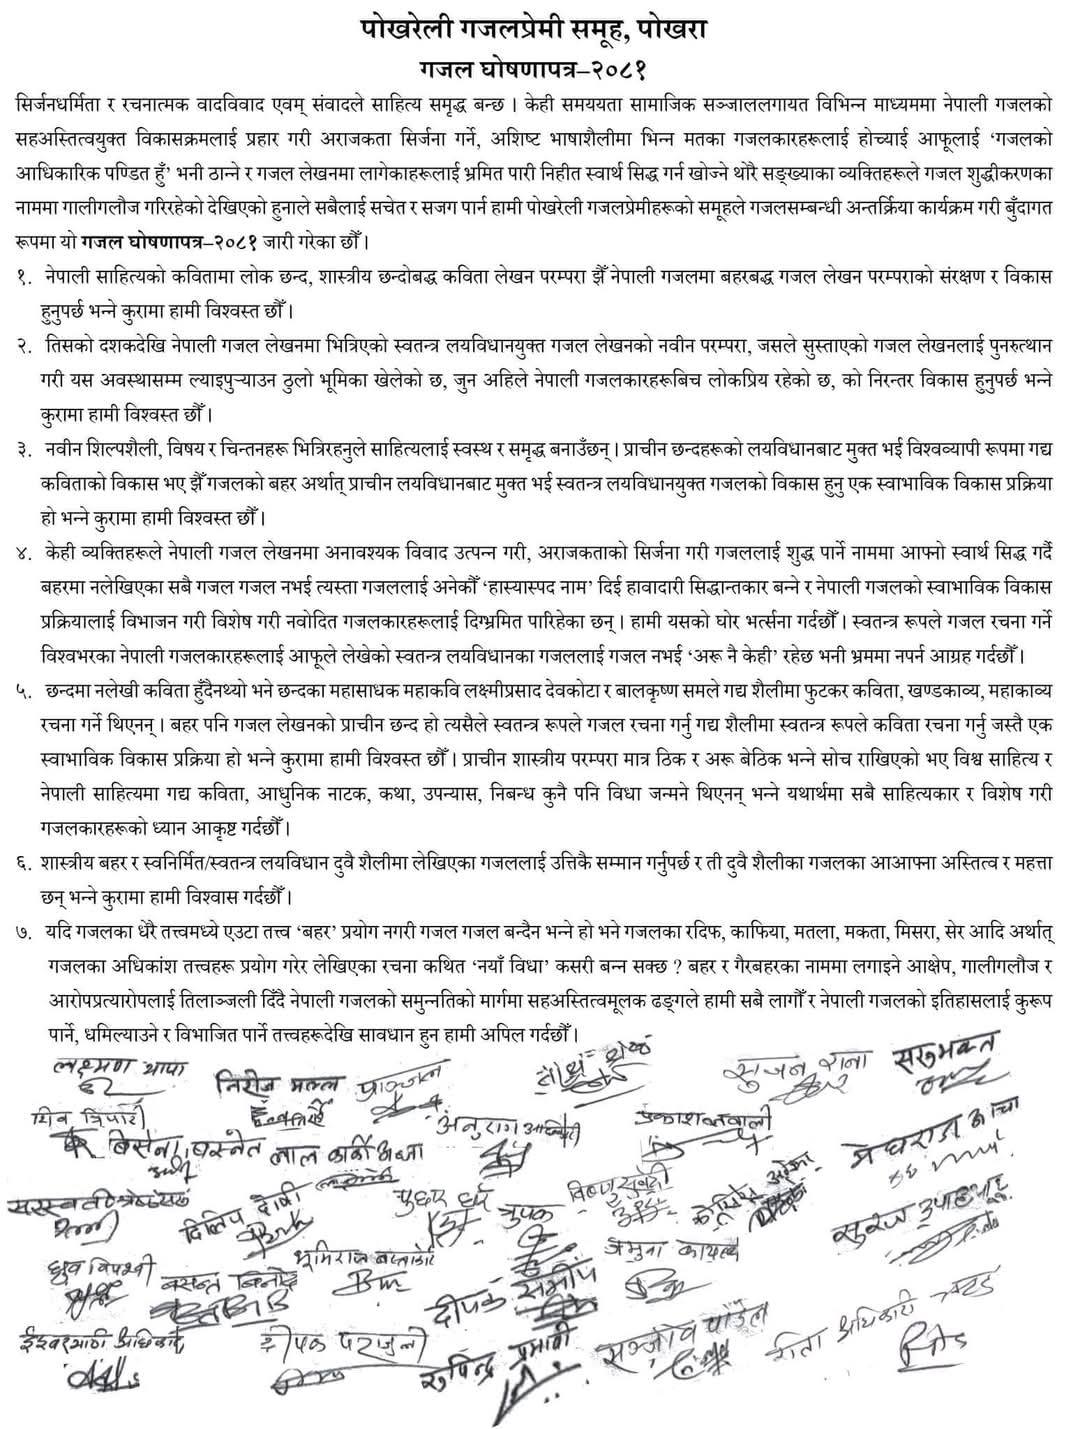 पोखरेली गजलप्रेमी समूह, पोखरा
गजल घोषणापत्र–२०८१
सिर्जनधर्मिता र रचनात्मक वादविवाद एवम् संवादले साहित्य समृद्ध बन्छ । केही समययता सामाजिक सञ्जाललगायत विभिन्न माध्यममा नेपाली गजलको
सहअस्तित्वयुक्त विकासक्रमलाई प्रहार गरी अराजकता सिर्जना गर्ने, अशिष्ट भाषाशैलीमा भिन्न मतका गजलकारहरूलाई होच्याई आफूलाई ‘गजलको
आधिकारिक पण्डित हुँ’ भनी ठान्ने र गजल लेखनमा लागेकाहरूलाई भ्रमित पारी निहीत स्वार्थ सिद्ध गर्न खोज्ने थोरै सङ्ख्याका व्यक्तिहरूले गजल शुद्धीकरणका
नाममा गालीगलौज गरिरहेको देखिएको हुनाले सबैलाई सचेत र सजग पार्न हामी पोखरेली गजलप्रेमीहरूको समूहले गजलसम्बन्धी अन्तर्क्रिया कार्यक्रम गरी बुँदागत
रूपमा यो गजल घोषणापत्र–२०८१ जारी गरेका छौँ ।
१. नेपाली साहित्यको कवितामा लोक छन्द, शास्त्रीय छन्दोबद्ध कविता लेखन परम्परा झैँ नेपाली गजलमा बहरबद्ध गजल लेखन परम्पराको संरक्षण र विकास
हुनुपर्छ भन्ने कुरामा हामी विश्वस्त छौँ ।
२. तिसको दशकदेखि नेपाली गजल लेखनमा भित्रिएको स्वतन्त्र लयविधानयुक्त गजल लेखनको नवीन परम्परा, जसले सुस्ताएको गजल लेखनलाई पुनरुत्थान
गरी यस अवस्थासम्म ल्याइपुऱ्याउन ठुलो भूमिका खेलेको छ, जुन अहिले नेपाली गजलकारहरूबिच लोकप्रिय रहेको छ, को निरन्तर विकास हुनुपर्छ भन्ने
कुरामा हामी विश्वस्त छौँ ।
३. नवीन शिल्पशैली, विषय र चिन्तनहरू भित्रिरहनुले साहित्यलाई स्वस्थ र समृद्ध बनाउँछन् । प्राचीन छन्दहरूको लयविधानबाट मुक्त भई विश्वव्यापी रूपमा गद्य
कविताको विकास भए झैँ गजलको बहर अर्थात् प्राचीन लयविधानबाट मुक्त भई स्वतन्त्र लयविधानयुक्त गजलको विकास हुनु एक स्वाभाविक विकास प्रक्रिया
हो भन्ने कुरामा हामी विश्वस्त छौँ ।
४. केही व्यक्तिहरूले नेपाली गजल लेखनमा अनावश्यक विवाद उत्पन्न गरी, अराजकताको सिर्जना गरी गजललाई शुद्ध पार्ने नाममा आफ्नो स्वार्थ सिद्ध गर्दै
बहरमा नलेखिएका सबै गजल गजल नभई त्यस्ता गजललाई अनेकौँ ‘हास्यास्पद नाम’ दिई हावादारी सिद्धान्तकार बन्ने र नेपाली गजलको स्वाभाविक विकास
प्रक्रियालाई विभाजन गरी विशेष गरी नवोदित गजलकारहरूलाई दिग्भ्रमित पारिहेका छन् । हामी यसको घोर भर्त्सना गर्दछौँ । स्वतन्त्र रूपले गजल रचना गर्ने
विश्वभरका नेपाली गजलकारहरूलाई आफूले लेखेको स्वतन्त्र लयविधानका गजललाई गजल नभई ‘अरू नै केही’ रहेछ भनी भ्रममा नपर्न आग्रह गर्दछौँ ।
५. छन्दमा नलेखी कविता हुँदैनथ्यो भने छन्दका महासाधक महाकवि लक्ष्मीप्रसाद देवकोटा र बालकृष्ण समले गद्य शैलीमा फुटकर कविता, खण्डकाव्य, महाकाव्य
रचना गर्ने थिएनन् । बहर पनि गजल लेखनको प्राचीन छन्द हो त्यसैले स्वतन्त्र रूपले गजल रचना गर्नु गद्य शैलीमा स्वतन्त्र रूपले कविता रचना गर्नु जस्तै एक
स्वाभाविक विकास प्रक्रिया हो भन्ने कुरामा हामी विश्वस्त छौँ । प्राचीन शास्त्रीय परम्परा मात्र ठिक र अरू बेठिक भन्ने सोच राखिएको भए विश्व साहित्य र
नेपाली साहित्यमा गद्य कविता, आधुनिक नाटक, कथा, उपन्यास, निबन्ध कुनै पनि विधा जन्मने थिएनन् भन्ने यथार्थमा सबै साहित्यकार र विशेष गरी
गजलकारहरूको ध्यान आकृष्ट गर्दछौँ ।
६. शास्त्रीय बहर र स्वनिर्मित/स्वतन्त्र लयविधान दुवै शैलीमा लेखिएका गजललाई उत्तिकै सम्मान गर्नुपर्छ र ती दुवै शैलीका गजलका आआफ्ना अस्तित्व र महत्ता
छन् भन्ने कुरामा हामी विश्वास गर्दछौँ ।
७. यदि गजलका धेरै तत्त्वमध्ये एउटा तत्त्व ‘बहर’ प्रयोग नगरी गजल गजल बन्दैन भन्ने हो भने गजलका रदिफ, काफिया, मतला, मकता, मिसरा, सेर आदि अर्थात्
गजलका अधिकांश तत्त्वहरू प्रयोग गरेर लेखिएका रचना कथित ‘नयाँ विधा’ कसरी बन्न सक्छ ? बहर र गैरबहरका नाममा लगाइने आक्षेप, गालीगलौज र
आरोपप्रत्यारोपलाई तिलाञ्जली दिँदै नेपाली गजलको समुन्नतिको मार्गमा सहअस्तित्वमूलक ढङ्गले हामी सबै लागौँ र नेपाली गजलको इतिहासलाई कुरूप
पार्ने, धमिल्याउने र विभाजित पार्ने तत्त्वहरूदेखि सावधान हुन हामी अपिल गर्दछौँ ।
लक्ष्मण थापा
सरुभक्त
सुजन राना
प्राञ्जल
अनुराग अधिकारी
दीपक समीप
दीपक पराजुली
सञ्जीव पौडेल